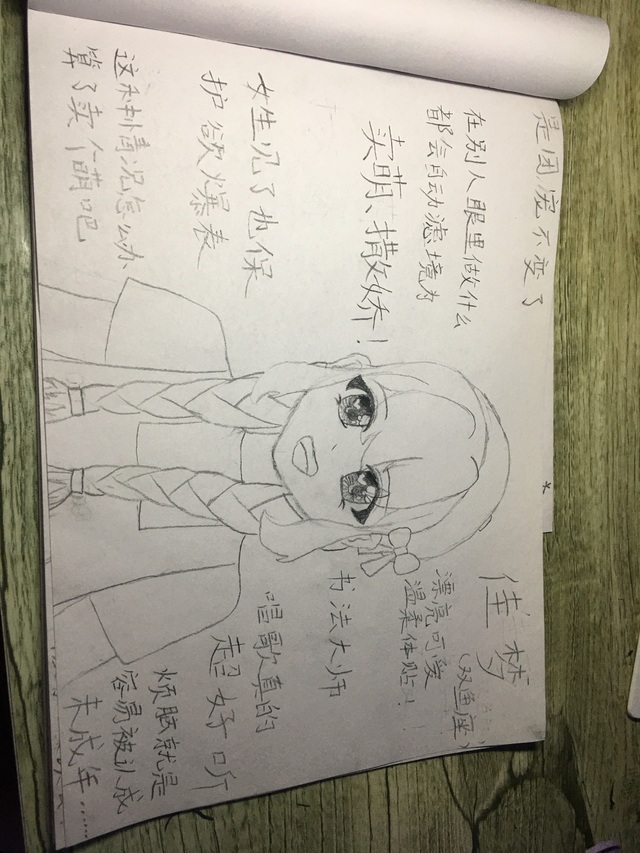 是团宠不变了
在别人眼里做什么
都会自动滤境为
卖萌、撒娇！
女生见了也保
护欲爆表
这种情况怎么办
算了卖个萌吧
佳梦
（双鱼座）
漂亮可爱
温柔体贴！
书法大师
唱歌真的
超好听
烦脑就是
容易被认成
未成年……